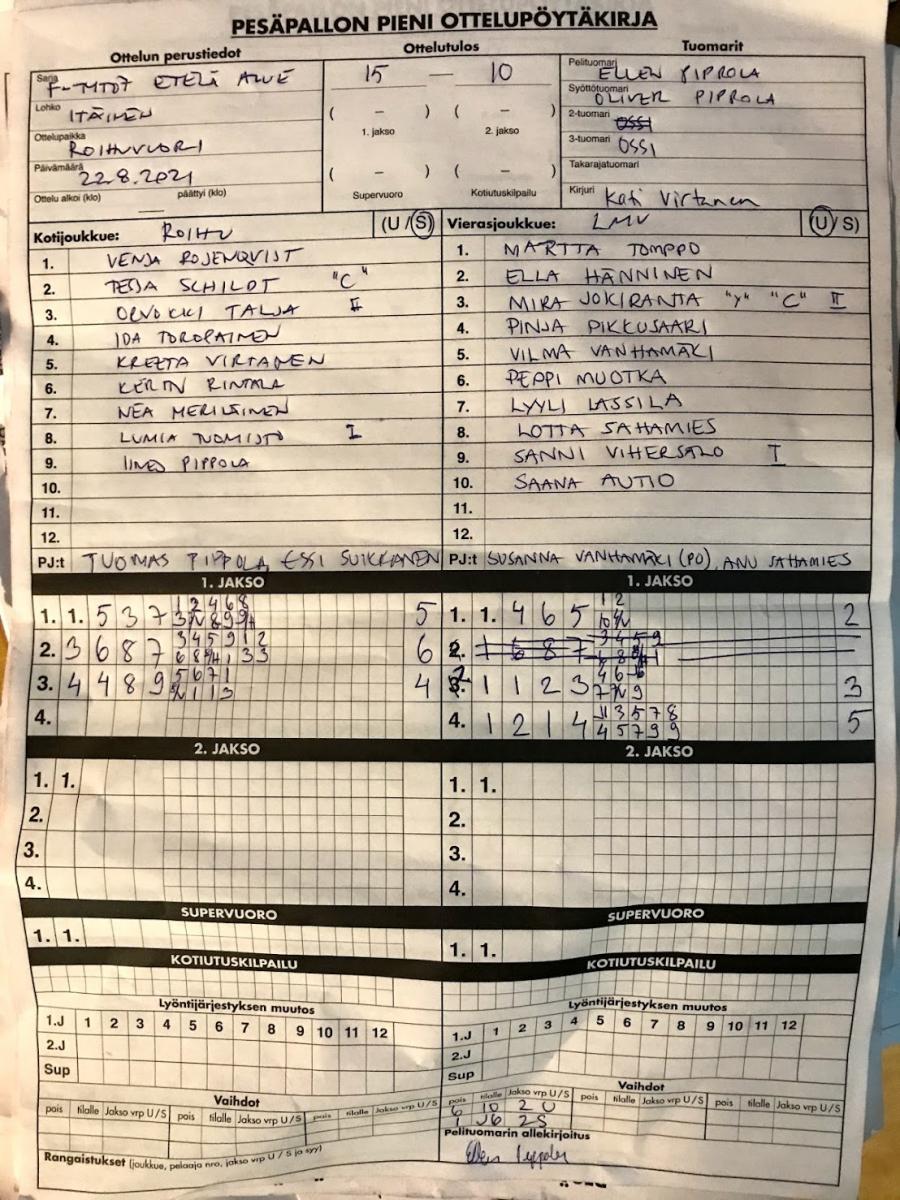 PESÄPALLON PIENI OTTELUPÖYTÄKIRJA
Ottelun perustiedot
Ottelutulos
Tuomarit
Sarja ETELÄ ALUE
Lohko ITÄINEN
Ottelupaikka ROIHUVUORI
Päivämäärä 22.8.2021
Ottelu alkoi (klo) — päättyi (klo)
15 — 10
( – ) ( – )
1. jakso 2. jakso
( – ) ( – )
Supervuoro Kotiutuskilpailu
Pelituomari ELLEN PIPPOLA
Syöttötuomari OLIVER PIPPOLA
2-tuomari OSSI
3-tuomari OSSI
Takarajatuomari
Kirjuri Kati Virtanen
Kotijoukkue: ROIHU (U/S)
1. VENJA ROSENQVIST
2. SCHILDT "C"
3. ORVOKKI TALJA II
4. IDA TOROPAINEN
5. KREETA VIRTANEN
6. KERTN RINTALA
7. NEA MERILÄINEN
8. LUMIA TUOMISTO I
9. IINES PIPPOLA
10.
11.
12.
PJ:t TUOMAS PIPPOLA, ESSI SUIKKANEN
Vierasjoukkue: LMV (U/S)
1. MARTTA TOMPPO
2. ELLA HÄNNINEN
3. MIRA JOKIRANTA "Y" "C" II
4. PINJA PIKKUSAARI
5. VILMA VANHAMÄKI
6. PEPPI MUOTKA
7. LYYLI LASSILA
8. LOTTA SAHAMIES
9. SANNI VIHERSALO I
10. SAANA AUTIO
11.
12.
PJ:t SUSANNA VANHAMÄKI (PO), ANU SAHAMIES
1. JAKSO
1. 1. 5 3 7 5
2. 3 6 8 7 6
3. 4 4 8 9 4
4.
1. JAKSO
1. 1. 4 6 5 2
2. 1 6 8 7
3. 1 1 2 3 3
4. 1 2 1 4 5
2. JAKSO
1. 1.
2.
3.
4.
2. JAKSO
1. 1.
2.
3.
4.
SUPERVUORO
1. 1.
SUPERVUORO
1. 1.
KOTIUTUSKILPAILU
KOTIUTUSKILPAILU
Lyöntijärjestyksen muutos
1.J 1 2 3 4 5 6 7 8 9 10 11 12
2.J
Sup
Lyöntijärjestyksen muutos
1.J 1 2 3 4 5 6 7 8 9 10 11 12
2.J
Sup
Vaihdot
pois tilalle Jakso vrp U/S pois tilalle Jakso vrp U/S pois tilalle Jakso vrp U/S
Vaihdot
pois tilalle Jakso vrp U/S pois tilalle Jakso vrp U/S pois tilalle Jakso vrp U/S
6 10 2 U
2S
Rangaistukset (joukkue, pelaaja nro, jakso vrp U / S ja syy)
Pelituomarin allekirjoitus